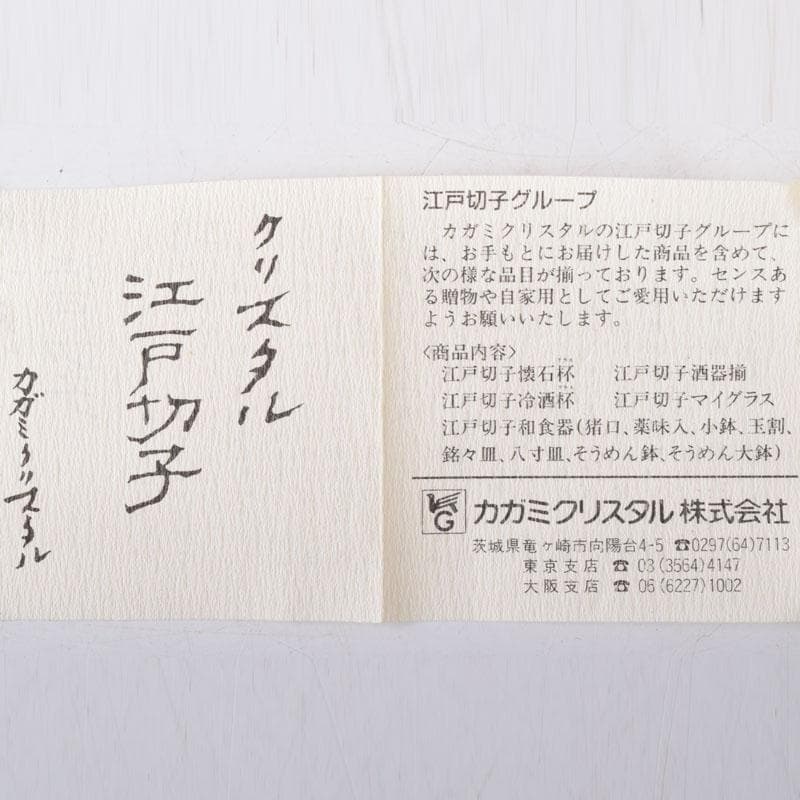 クリスタル
江戸切子
カガミクリスタル
江戸切子グループ
カガミクリスタルの江戸切子グループに
は、お手もとにお届けした商品を含めて、
次の様な品目が揃っております。センスあ
る贈物や自家用としてご愛用いただけます
ようお願いいたします。
〈商品内容〉
江戸切子懐石杯 江戸切子酒器揃
江戸切子冷酒杯 江戸切子マイグラス
江戸切子和食器(猪口、薬味入、小鉢、玉割、
銘々皿、八寸皿、そうめん鉢、そうめん大鉢)
KG カガミクリスタル株式会社
茨城県竜ヶ崎市向陽台4-5 ☎0297(64)7113
東京支店 ☎ 03(3564)4147
大阪支店 ☎ 06(6227)1002